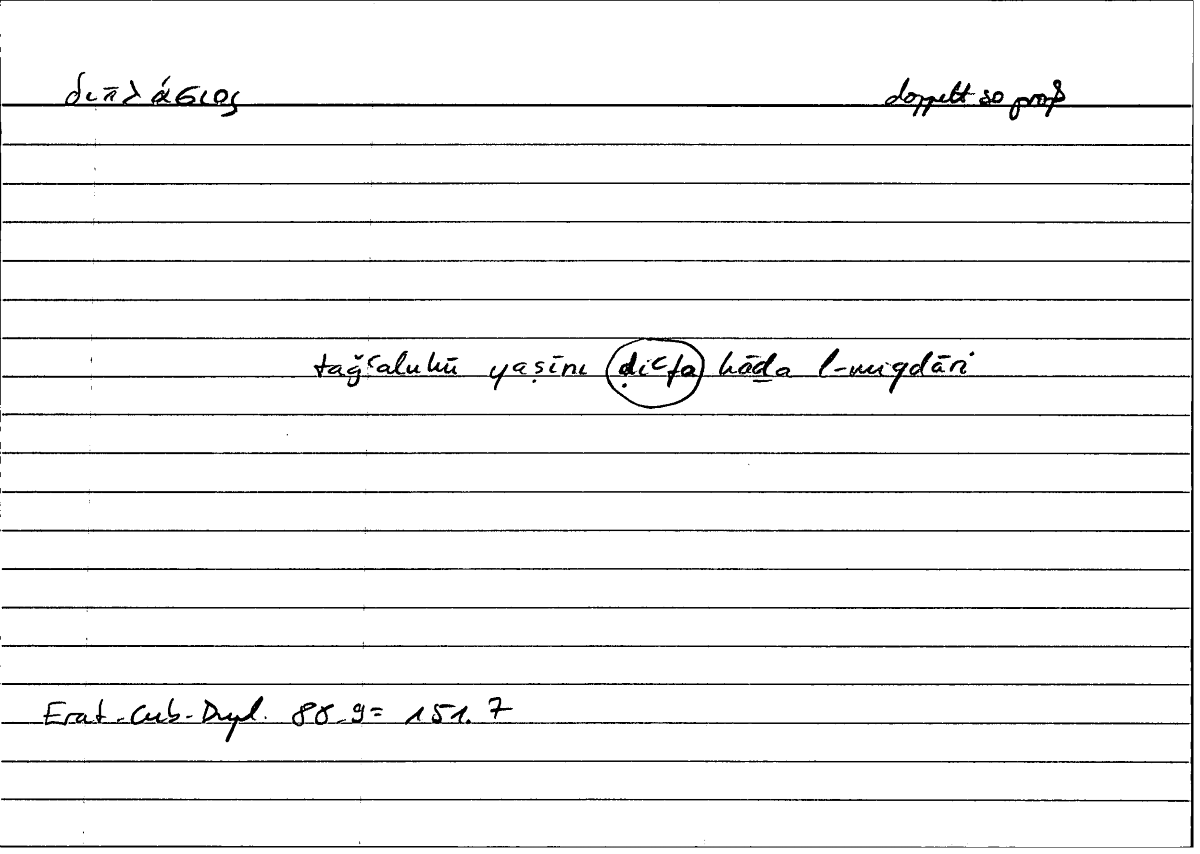 διπλάσιος doppelt so groß
taǧʿaluhū yaṣīru ḍiʿfa hāḏa l-miqdāri
Erat-Cub-Dupl. 88.9 = 151.7